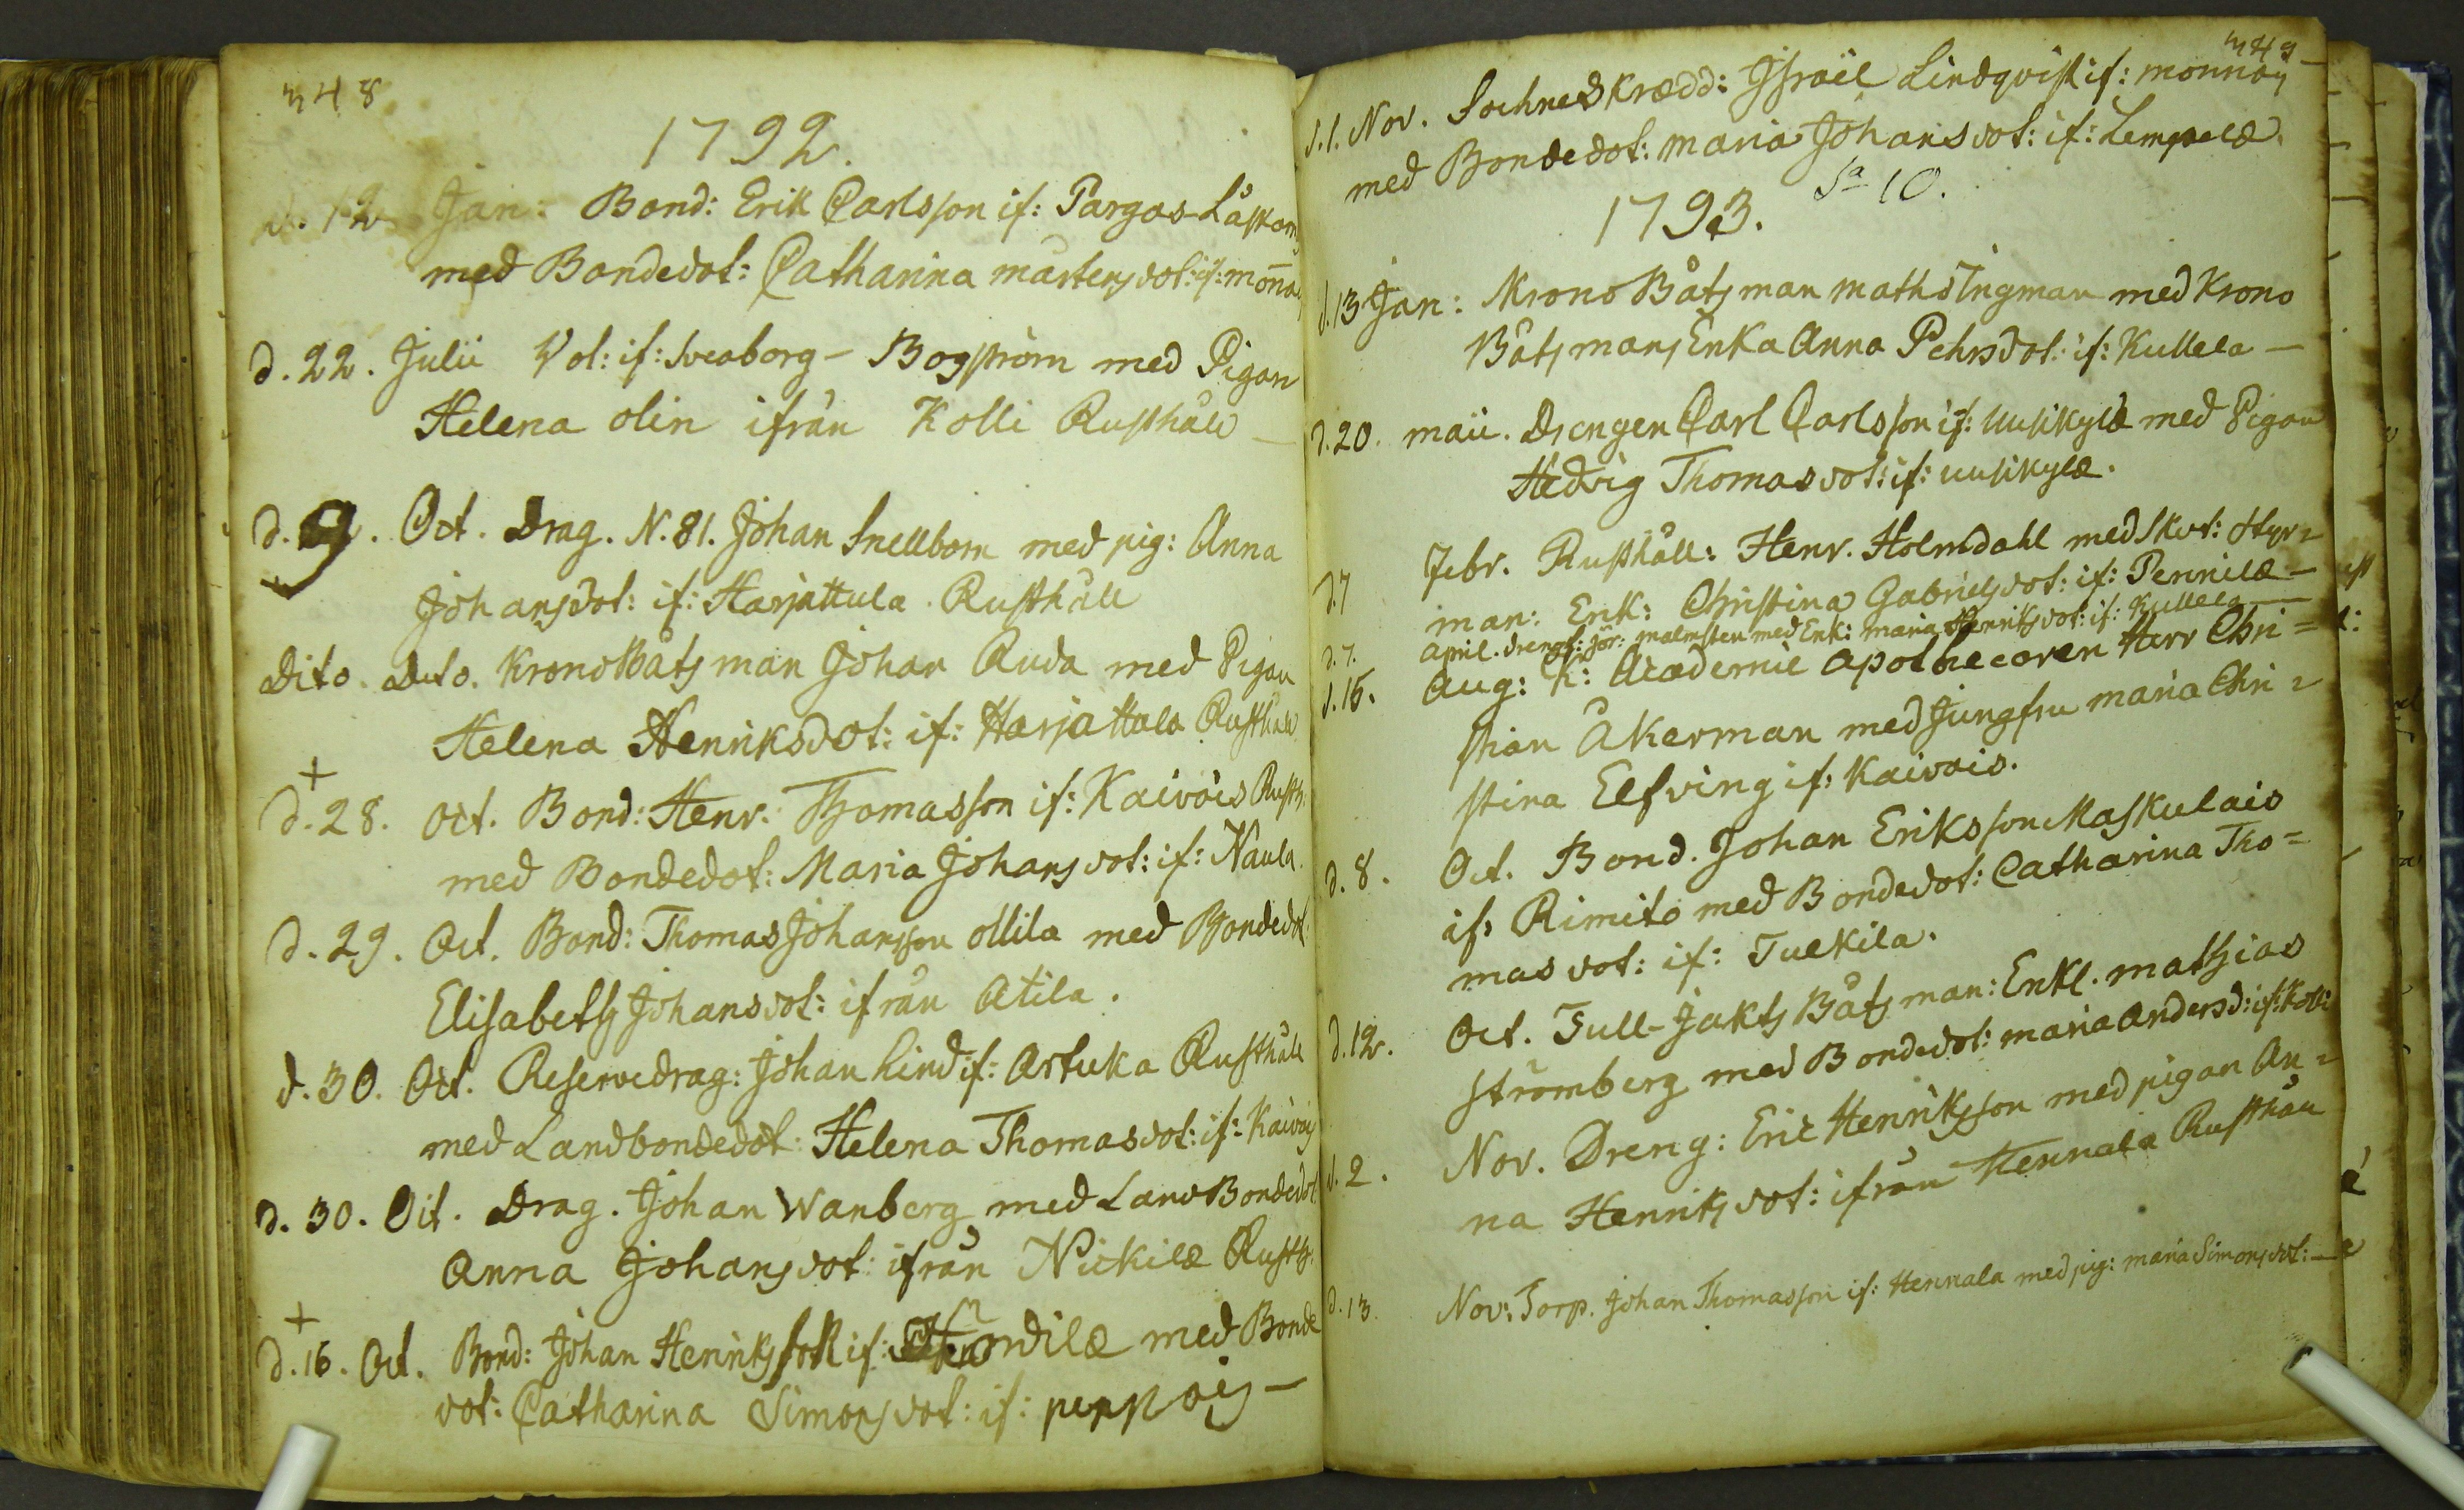 348
1792.
d. 12 Jan: Bond: Erik Carlsson if: Pargas-Låskom
med Bondedot: Catharina mårtensdot: if: monna
d. 22. Julii Vol: if: Sveaborg - Bogström med Pigan
Helena olin ifrån Kolli Rusthåll
d. 9. Oct. Drag. N. 81. Johan Snellbom med pig: Anna
Johansdot: if: Harjattula. Rusthåll
Dito. Dito. KronoBåtsman Johan Ruda med Pigan
Helena Henriksdot: if: Harjattula Rusthåll
+
d. 28. Oct. Bond: Henr. Thomasson if: Kaivois Rusth.
med Bondedot: Maria Johansdot: if: Naula.
d. 29. Oct. Bond: Thomas Johansson ollila med Bondedot.
Elisabeth Johansdot: ifrån Atila.
d. 30. Oct. Reservedrag: Johan Lind if: Artuka Rusthåll
med Landbondedot: Helena Thomasdot: if: Kaivois
d. 30. Oct. Drag. Johan Wanberg med LandBondedot
Anna Johansdot: ifrån Nickilæ Rusth.
+
d. 16. Oct. Bond: Johan Henriksson if: med Bonde
dot: Catharina Simonsdot: if: perpois —
349
d. 1. Nov. Sochneskrædd: Israel Lindqvist if: monnois
med Bondedot: maria Johansdot: if: Lempelæ.
Sa 10.
1793.
d. 13 Jan: Krono Båtsman maths Ingman med Krono
Båtsmans Enka Anna Pehrsdot: if: Kullela —
d. 20. maii. Drengen Carl Carlsson if: Uusikylæ med Pigan
Hedvig Thomasdot: if: uusikylæ.
d. 7 Febr. Rusthåll: Henr. Holmdahl med Skot: Styr=
man: Enk: Christina Gabrielsdot: if: Pennilæ —
d. 7. April. dreng: Jör: malmsten med Enk: maria Henriksdot: if: Kullela
d. 15. Aug: K: Academie Apothecaren Herr Chri=
stian Åkerman med Jungfru maria Chri=
stina Elfving if: Kaivois.
d. 8. Oct. Bond. Johan Eriksson Maskulais
if: Rimito med Bondedot: Catharina Tho=
mas dot: if: Tuekila.
d. 12. Oct. Tull-Jakts Båtsman: Enkl. mathias
Strömberg med Bondedot: maria Andersd: if: Kolli
d. 2. Nov. Dreng: Eric Henriksson med pigan An=
na Henriksdot: ifrån Hennala Rusthåll
d. 13. Nov: Torp. Johan Thomasson if: Hennala med pig: maria Simonsdot: —